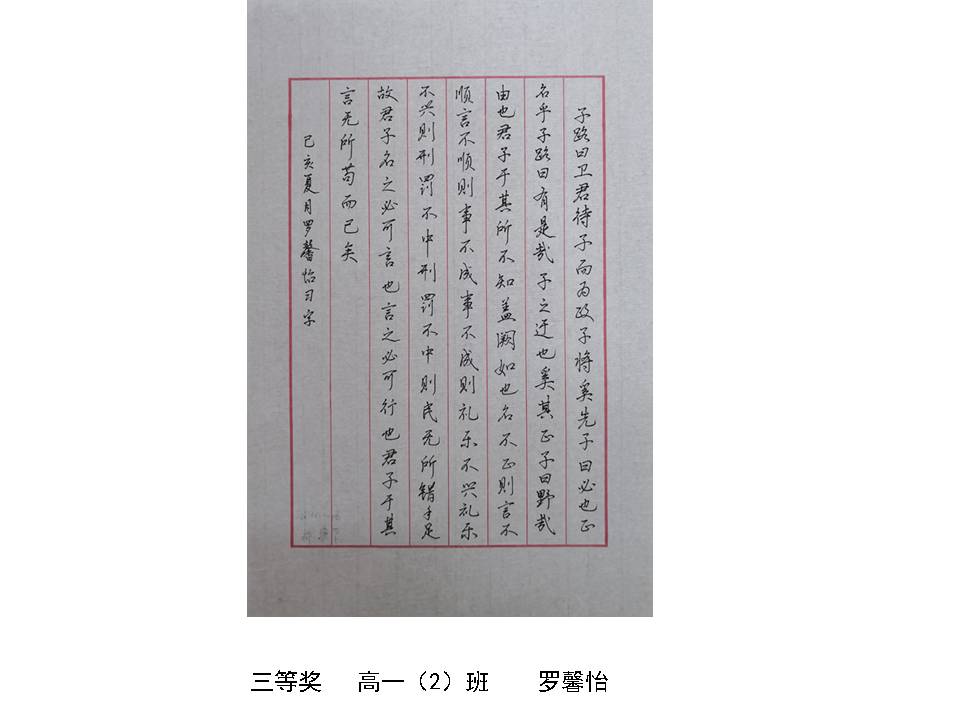 子路曰卫君待子而为政子将奚先子曰必也正
名乎子路曰有是哉子之迂也奚其正子曰野哉
由也君子于其所不知盖阙如也名不正则言不
顺言不顺则事不成事不成则礼乐不兴礼乐
不兴则刑罚不中刑罚不中则民无所错手足
故君子名之必可言也言之必可行也君子于其
言无所苟而已矣
己亥夏月罗馨怡习字
三等奖 高一（2）班 罗馨怡